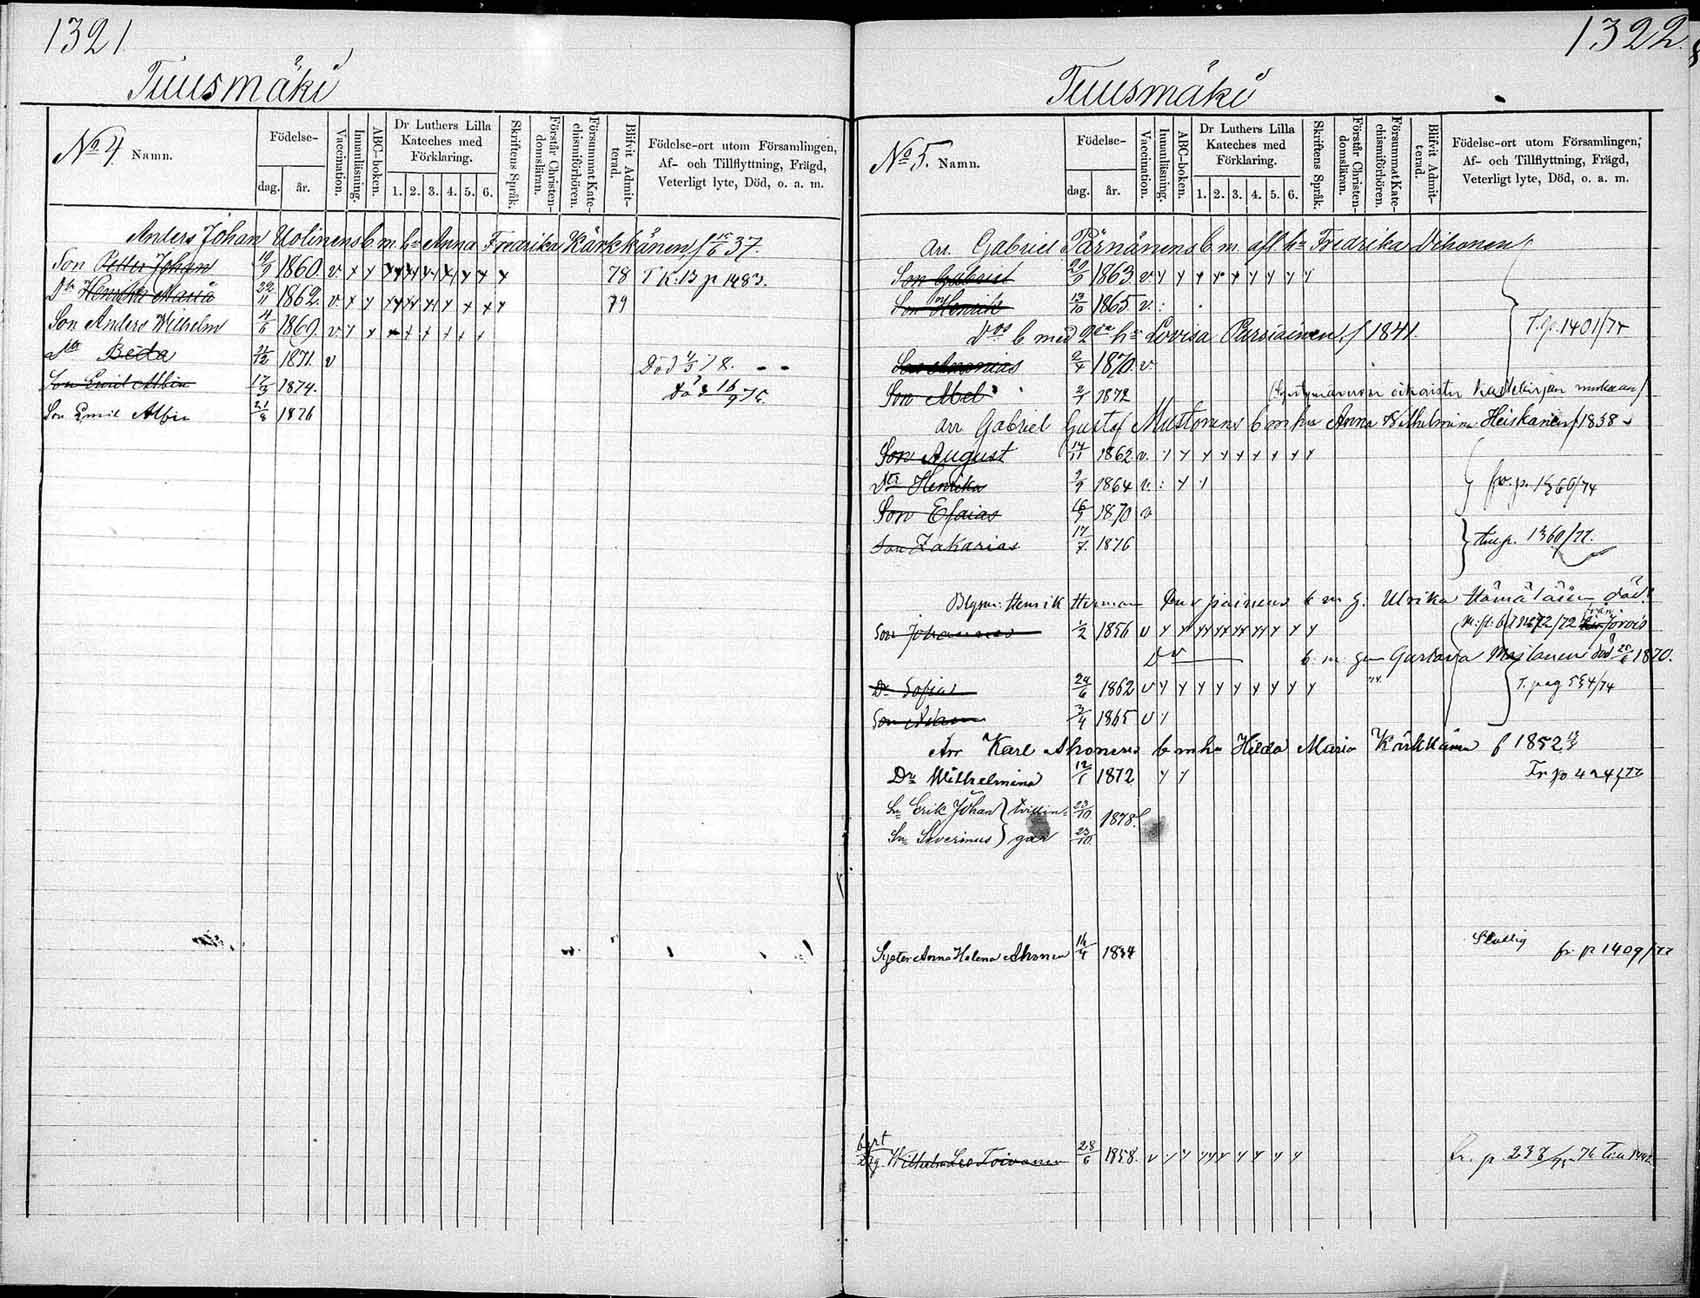 1321
Tuusmäki
No 4. Namn.
Födelse-
dag. år.
Vaccination.
Innanläsning.
ABC-boken.
Dr Luthers Lilla Kateches med Förklaring.
1. 2. 3. 4. 5. 6.
Skriftens Språk.
Förstår Christendomsläran.
Försummat Katechismiförhören.
Blifvit Admitterad.
Födelse-ort utom Församlingen, Af- och Tillflyttning, Frägd, Veterligt lyte, Död, o. a. m.
Anders Johan b m hu Anna Fredrika Kärkkänen f 15/6 37.
Son Petter Johan 10/9 1860. v 78 T K.B p 1483.
Dtr Henrika Maria 22/11 1862. v 79
Son Anders Wilhelm 4/6 1869 v
Dtr Beda 1871. v Död 4/5 78.
Son Emil Albin 17/3 1874. Död 16/9 75.
Son Emil Albin 21/8 1876
1322
Tuusmäki
No 5. Namn.
Födelse-
dag. år.
Vaccination.
Innanläsning.
ABC-boken.
Dr Luthers Lilla Kateches med Förklaring.
1. 2. 3. 4. 5. 6.
Skriftens Språk.
Förstår Christendomsläran.
Försummat Katechismiförhören.
Blifvit Admitterad.
Födelse-ort utom Församlingen, Af- och Tillflyttning, Frägd, Veterligt lyte, Död, o. a. m.
arr. Gabriel Pärnänens b m afl hu Fredrika Vihonen
Son Gabriel 1863 v
Son Henrik 13/10 1865 v.
Dos b med 2dra hu Lovisa Pursiainen f 1841. T.p. 1401/74
Son Ananias 2/4 1870 v
Son Abel 1872
arr Gabriel Gustaf Mustonens b m hu Anna Wilhelmina Heiskanen f 1838
Son August 14/11 1862 v.
Dtr Henrika 2/9 1864 v. fr. p. 1360/74
Son Esaias 1870 v
Son Zakarias 17/7. 1876 till p. 1360/77.
Henrik Herman b m g. Ulrika Hämäläin död
Son Johannes 1/2 1856 v
b. m. g. Gustava död 1870.
Dr Sofia 24/6 1862 v T. pag 554/74
Son Adam 3/4 1865 v
Arr Karl Ahonens b m hu Hilda Maria Kärkkäinen f 1852
Dr Wilhelmina 12/1 1872 Fr p 424/77
Sn Erik Johan } tvillin- 23/10 1878.
Sn Severinus } gar 23/10
Syster Anna Helena Ahonen 1834 fr p 1409/77
Wilhelm Leo Toivanen 28/6 1858. v